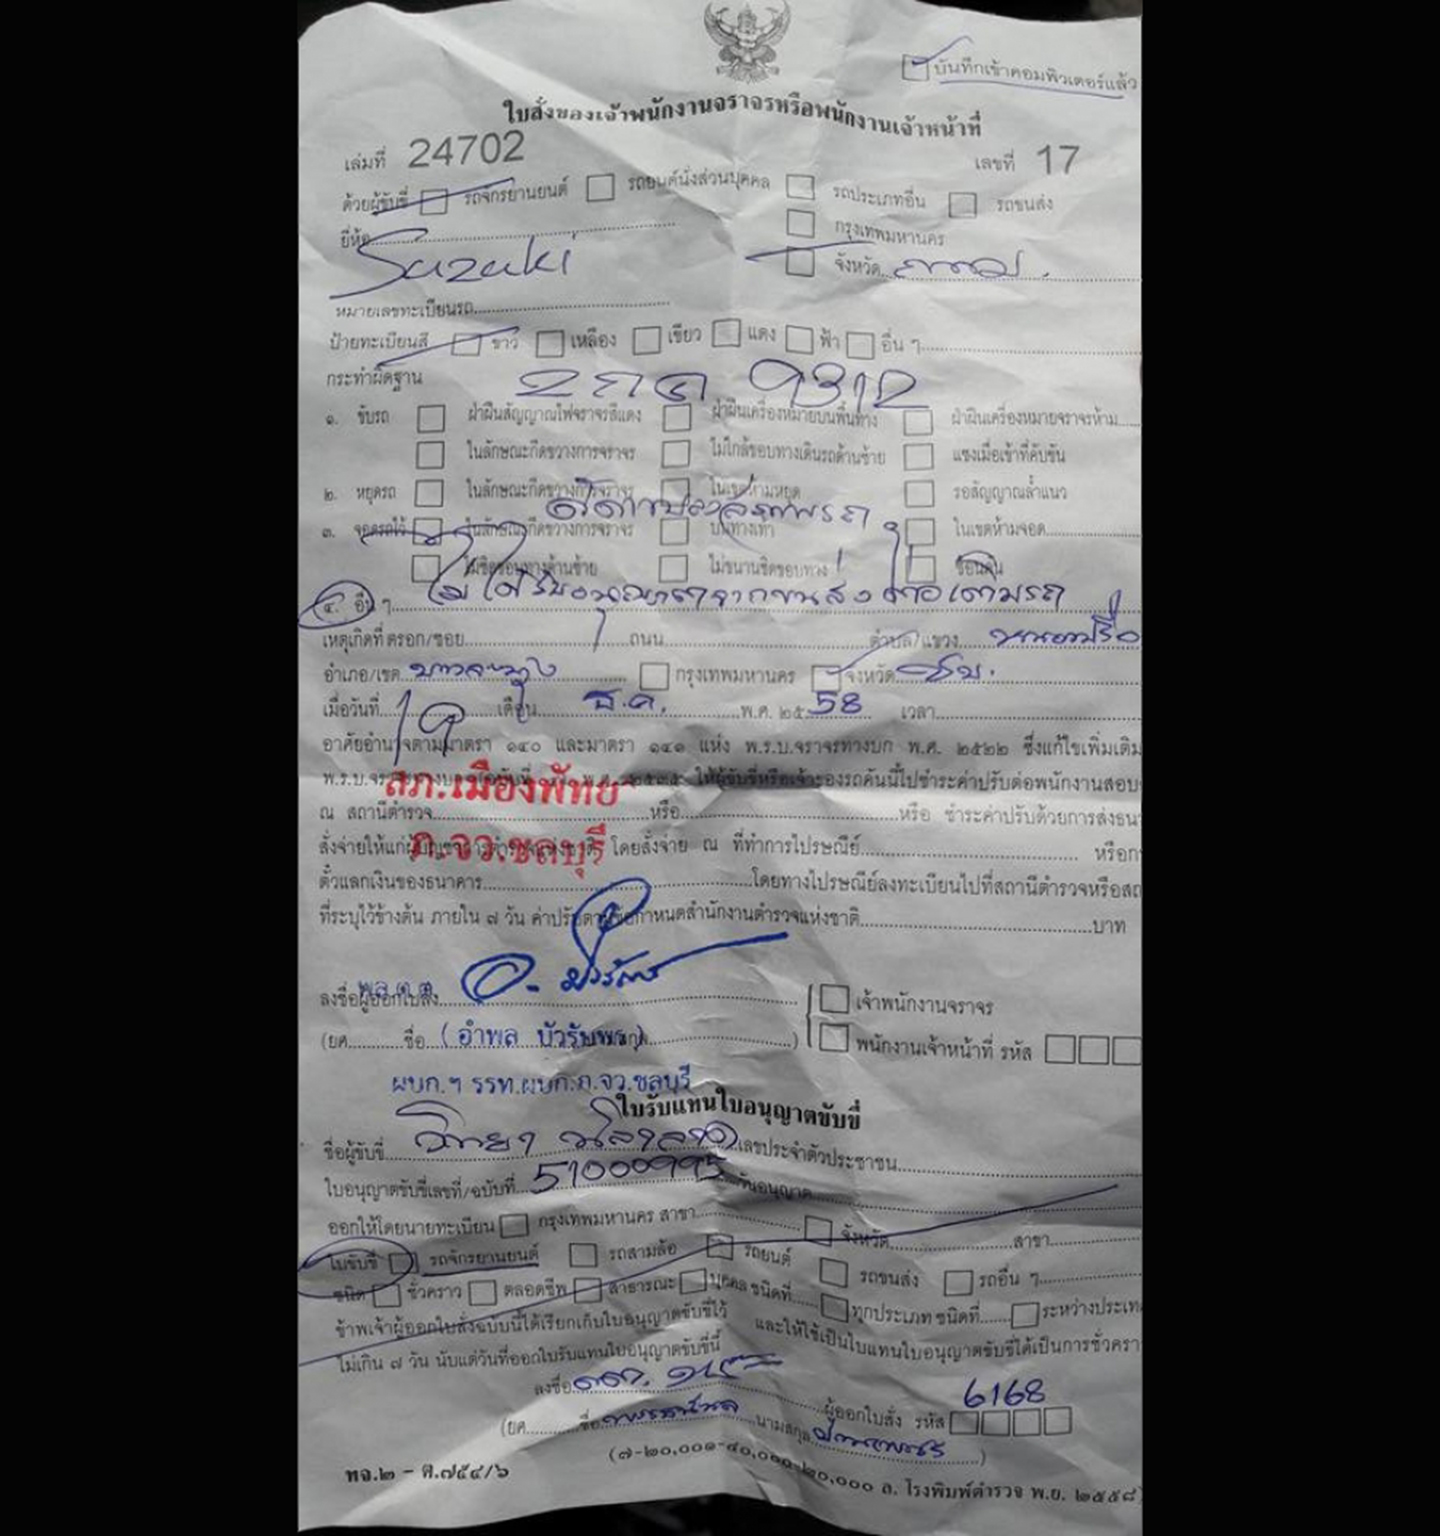 บันทึกเข้าคอมพิวเตอร์แล้ว
ใบสั่งของเจ้าพนักงานจราจรหรือพนักงานเจ้าหน้าที่
เล่มที่ 24702 เลขที่ 17
ด้วยผู้ขับขี่ รถจักรยานยนต์ รถยนต์นั่งส่วนบุคคล รถประเภทอื่น รถขนส่ง
ยี่ห้อ Suzuki กรุงเทพมหานคร
จังหวัด
หมายเลขทะเบียนรถ
ป้ายทะเบียนสี ขาว เหลือง เขียว แดง ฟ้า อื่น ๆ
กระทำผิดฐาน 9312
๑. ขับรถ ฝ่าฝืนสัญญาณไฟจราจรสีแดง ฝ่าฝืนเครื่องหมายบนพื้นทาง ฝ่าฝืนเครื่องหมายจราจรห้าม
ในลักษณะกีดขวางการจราจร ไม่ใกล้ขอบทางเดินรถด้านซ้าย แซงเมื่อเข้าที่คับขัน
๒. หยุดรถ ในลักษณะกีดขวางการจราจร ในเขตห้ามหยุด รอสัญญาณล้ำแนว
ดัดแปลงสภาพรถ
๓. จอดรถไว้ ในลักษณะกีดขวางการจราจร บนทางเท้า ในเขตห้ามจอด
ไม่ชิดขอบทางด้านซ้าย ไม่ขนานชิดขอบทาง ซ้อนคัน
๔. อื่น ๆ ไม่ได้รับอนุญาตจากขนส่ง
เหตุเกิดที่ ตรอก/ซอย ถนน ตำบล/แขวง หนองปรือ
อำเภอ/เขต บางละมุง กรุงเทพมหานคร จังหวัด ชบ.
เมื่อวันที่ 19 เดือน ธ.ค. พ.ศ. ๒๕ 58 เวลา
อาศัยอำนาจตามมาตรา ๑๔๐ และมาตรา ๑๔๑ แห่ง พ.ร.บ.จราจรทางบก พ.ศ. ๒๕๒๒ ซึ่งแก้ไขเพิ่มเติม
ให้ผู้ขับขี่หรือเจ้าของรถคันนี้ไปชำระค่าปรับต่อพนักงานสอบ
สภ.เมืองพัทยา
ณ สถานีตำรวจ หรือ หรือ ชำระค่าปรับด้วยการส่งธน
ภ.จว.ชลบุรี
สั่งจ่ายให้แก่ โดยสั่งจ่าย ณ ที่ทำการไปรษณีย์ หรือ
ตั๋วแลกเงินของธนาคาร โดยทางไปรษณีย์ลงทะเบียนไปที่สถานีตำรวจหรือ
ที่ระบุไว้ข้างต้น ภายใน ๗ วัน ค่าปรับตามข้อกำหนดสำนักงานตำรวจแห่งชาติ บาท
ลงชื่อผู้ออกใบสั่ง เจ้าพนักงานจราจร
(ยศ ชื่อ (อำพล บัวรับพร) ) พนักงานเจ้าหน้าที่ รหัส
ผบก.ฯ รรท.ผบก.ภ.จว.ชลบุรี
ใบรับแทนใบอนุญาตขับขี่
ชื่อผู้ขับขี่ เลขประจำตัวประชาชน
ใบอนุญาตขับขี่เลขที่/ฉบับที่ 51000995
ออกให้โดยนายทะเบียน กรุงเทพมหานคร สาขา จังหวัด สาขา
ใบขับขี่ รถจักรยานยนต์ รถสามล้อ รถยนต์ รถขนส่ง รถอื่น ๆ
ชนิด ชั่วคราว ตลอดชีพ สาธารณะ บุคคล ชนิดที่ ทุกประเภท ชนิดที่ ระหว่างประเท
ข้าพเจ้าผู้ออกใบสั่งฉบับนี้ได้เรียกเก็บใบอนุญาตขับขี่ไว้ และให้ใช้เป็นใบแทนใบอนุญาตขับขี่ได้เป็นการชั่วครา
ไม่เกิน ๗ วัน นับแต่วันที่ออกใบรับแทนใบอนุญาตขับขี่นี้
ลงชื่อ ผู้ออกใบสั่ง รหัส 6168
(ยศ ชื่อ นามสกุล )
พจ.๒ - ต.๗๕๔/๖
โรงพิมพ์ตำรวจ พ.ย. ๒๕๕๘